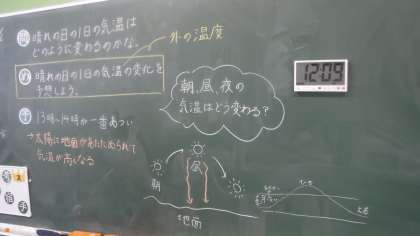 問 晴れの日の1日の気温は
どのように変わるのかな。
外の温度
め 晴れの日の1日の気温の変化を
予想しよう。
予 13時〜14時が一番あつい
→太陽に地面があたためられて
気温が高くなる
朝、昼、夜の
気温はどう変わる？
12:09
朝
昼
地面